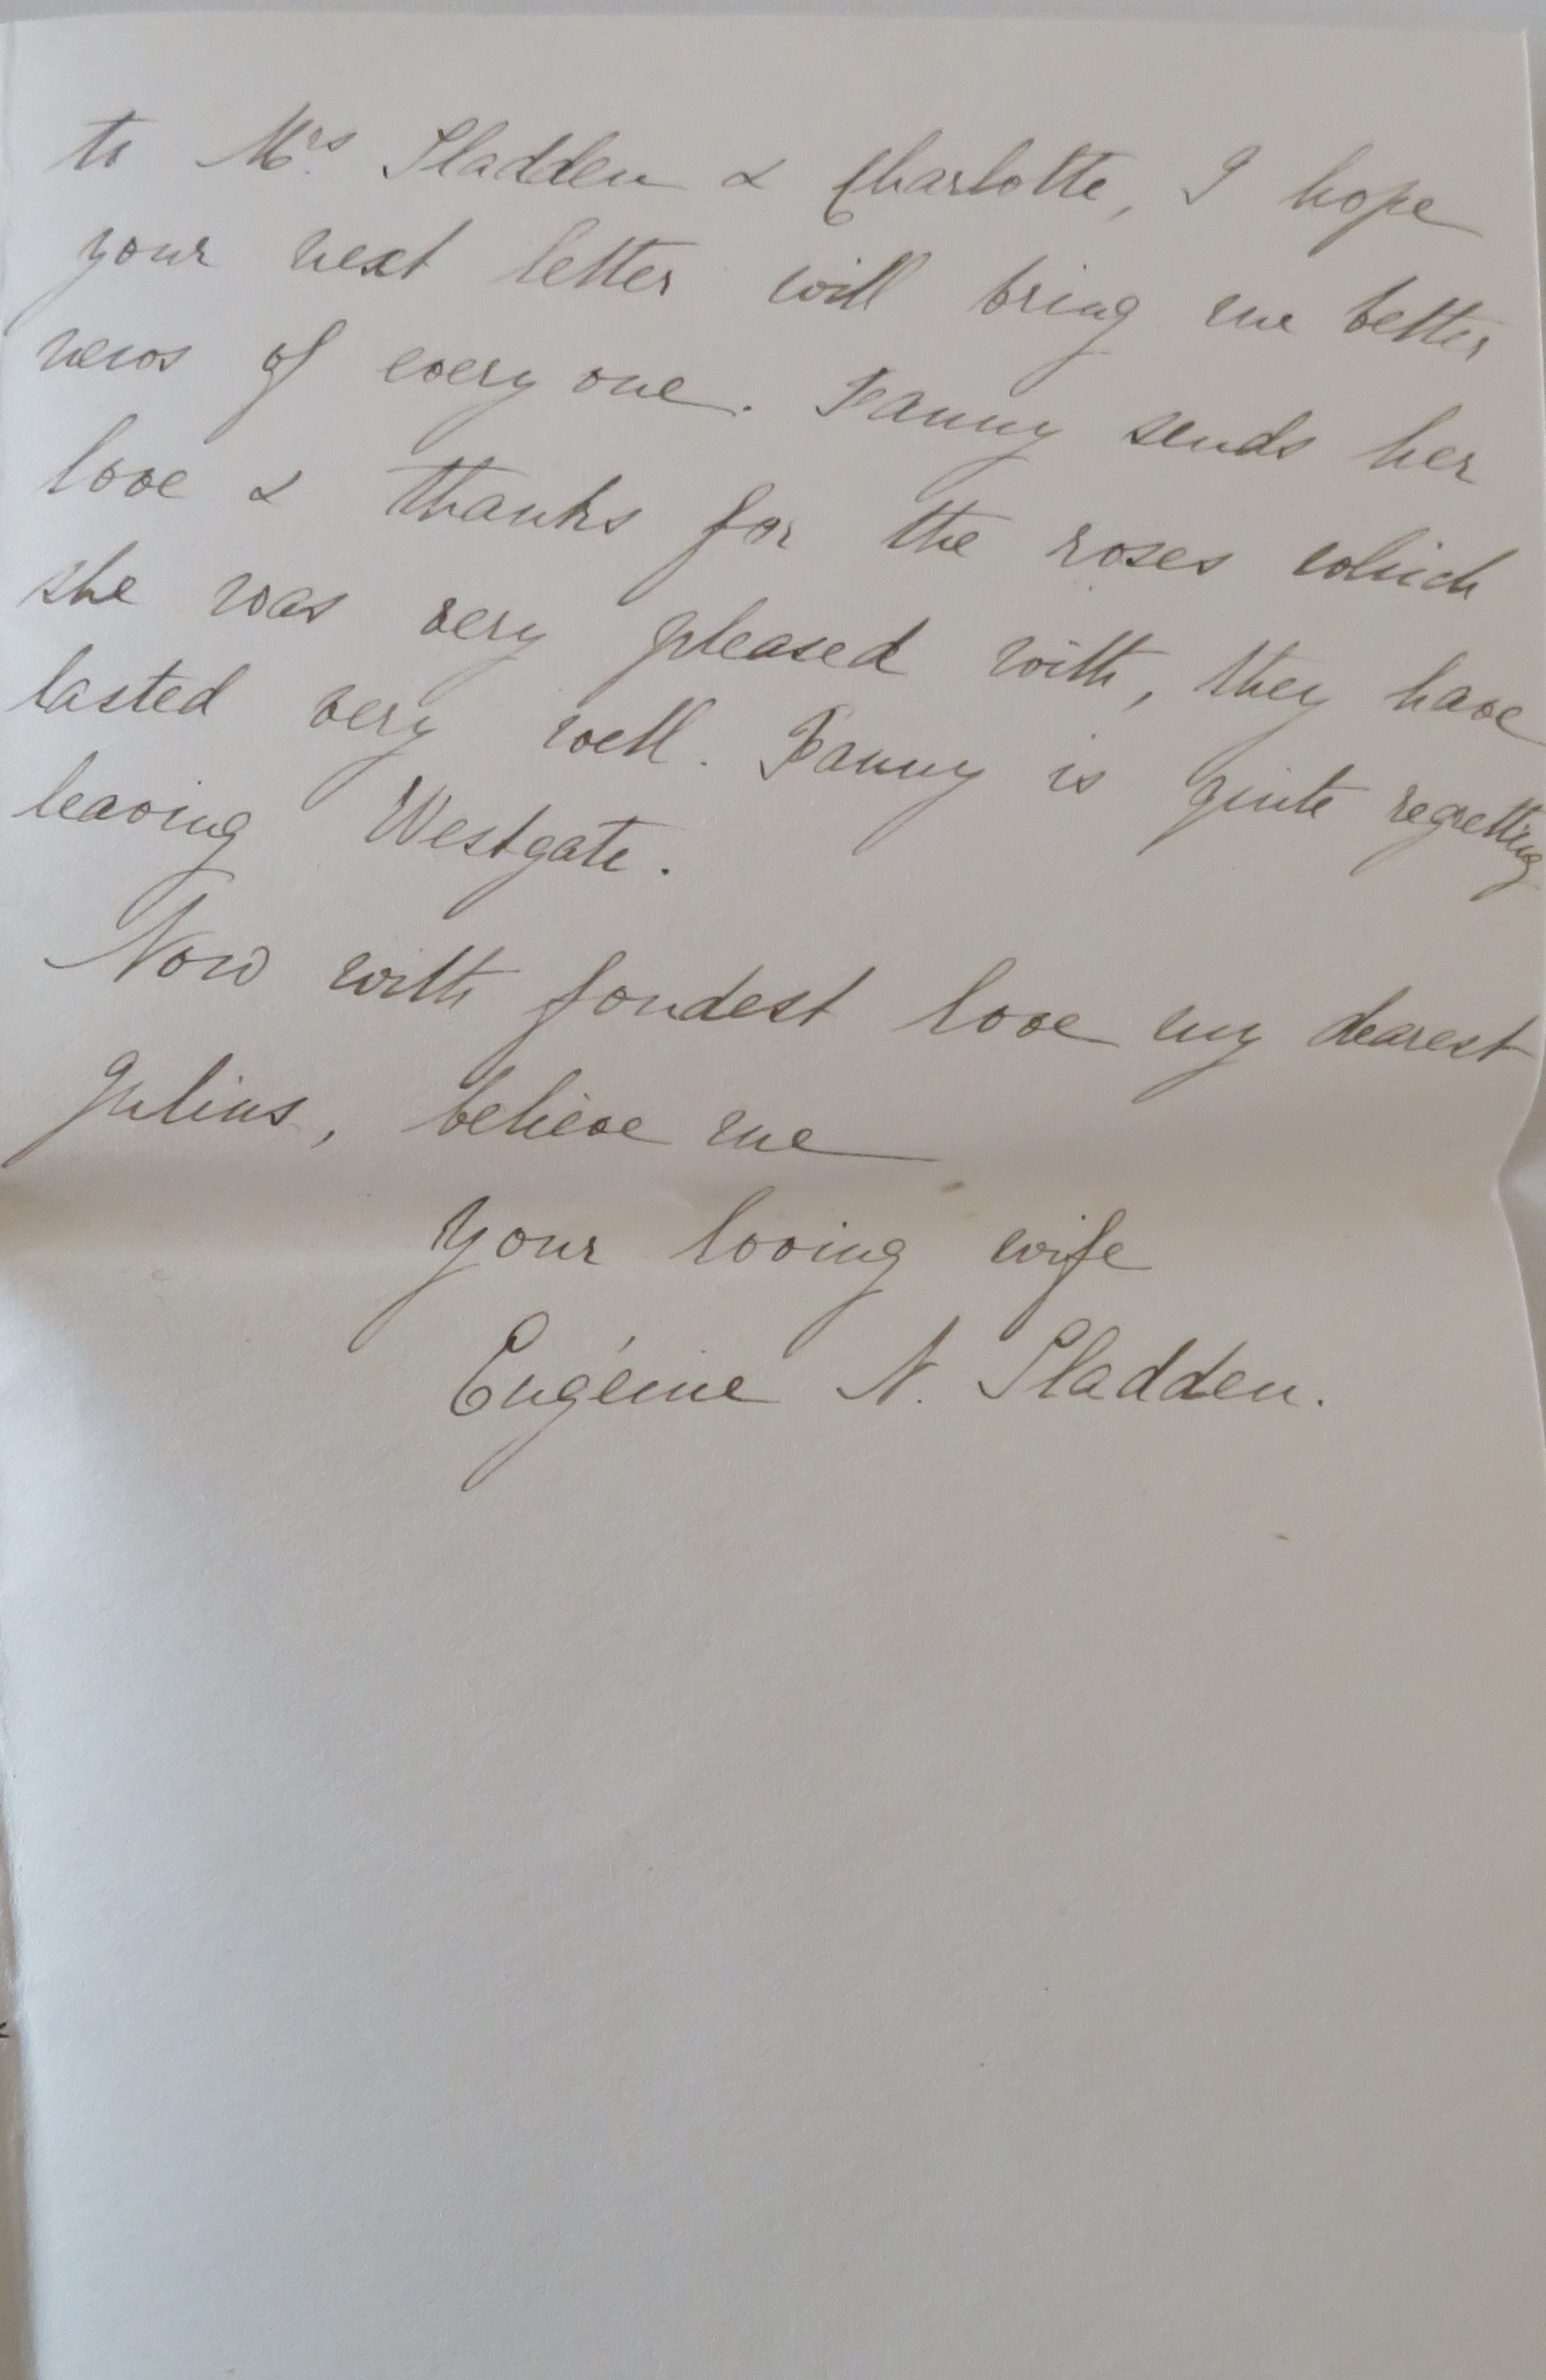 to Mrs. Sladden & Charlotte, I hope
your next letter will bring me better
news of every one. Fanny sends her
love & thanks for the roses which
she was very pleased with, they have
lasted very well. Fanny is quite regretting
leaving Westgate.
Now with fondest love my dearest
Julius, believe me
your loving wife
Eugénie N. Sladden.